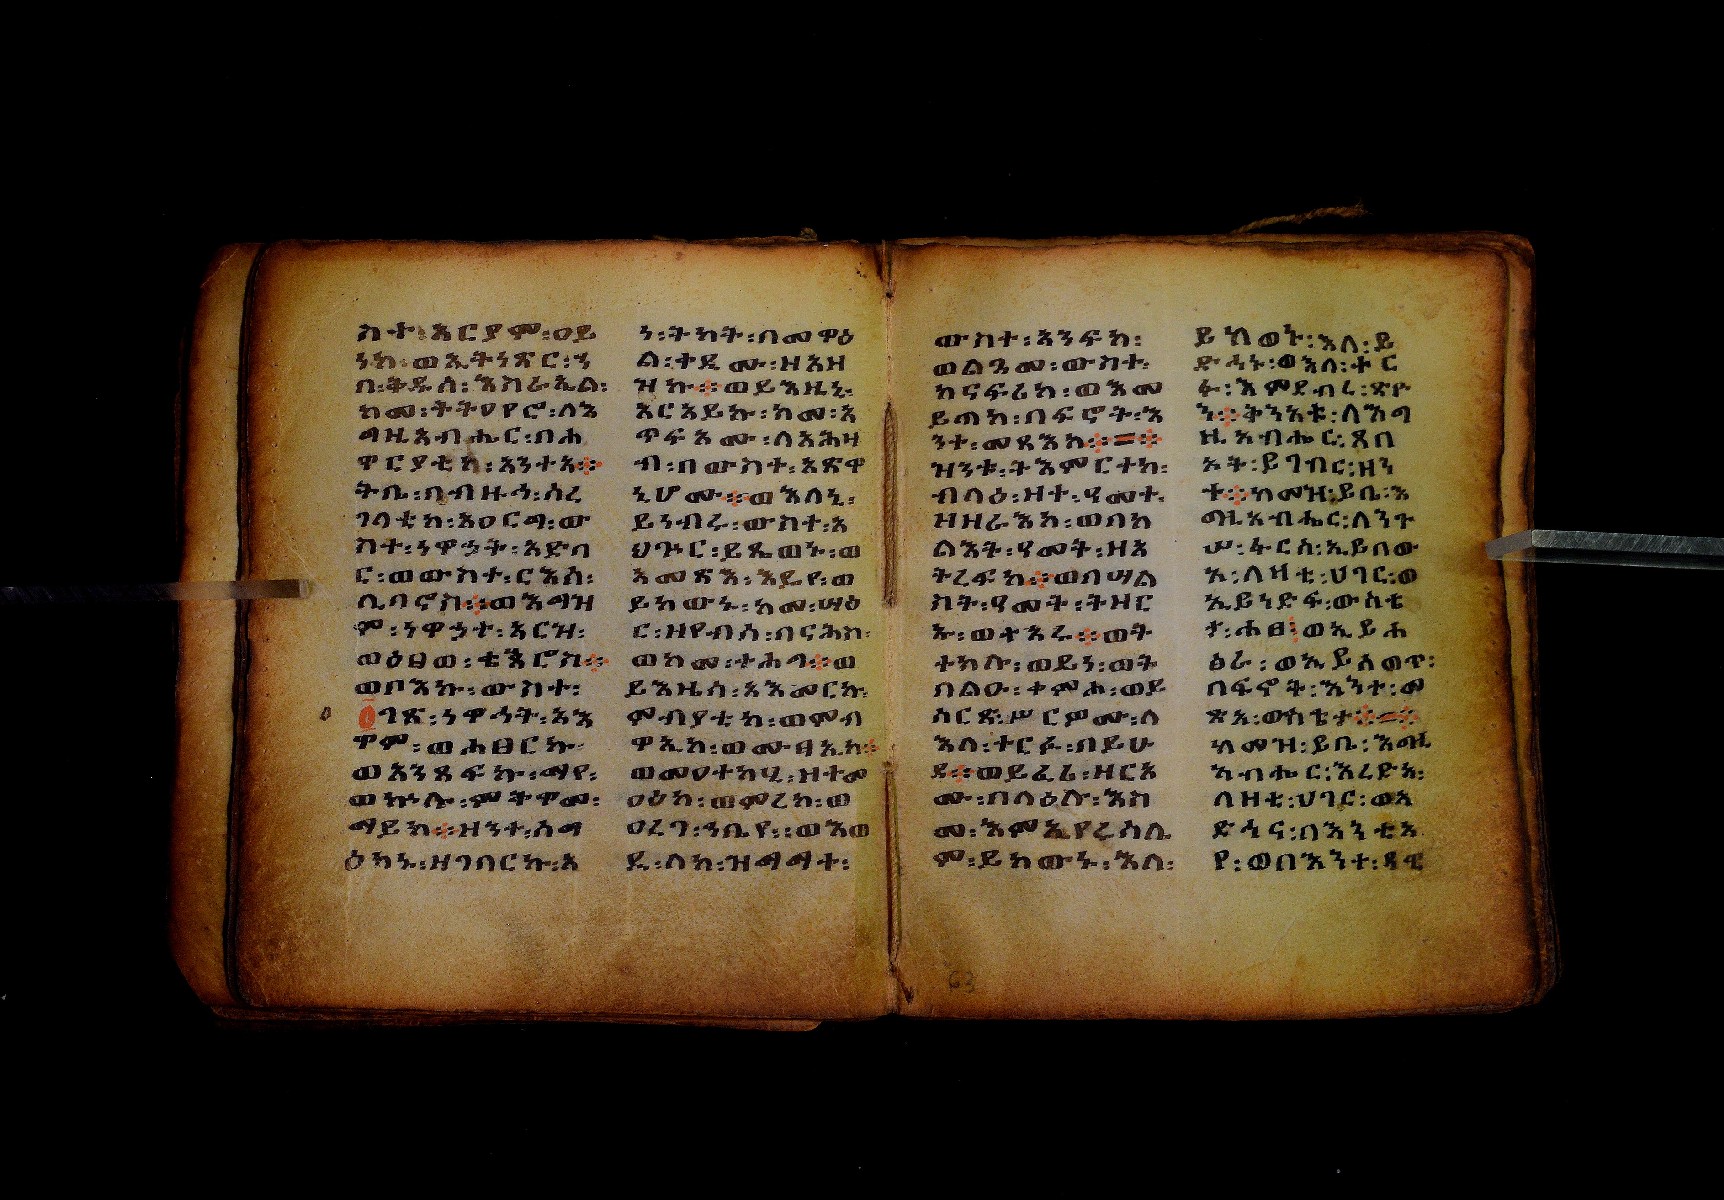 ስተ፡አርያም፡ዐይ
ንከ፡ወኢትነጽር፡ኀ
በ፡ቅዱሰ፡እስራኤል፡
ከመ፡ትትዐየሮ፡ለእ
ግዚአብሔር፡በሐ
ዋርያቲከ፡አንተአ፨
ትቤ፡በብዙኅ፡ሰረ
ገላቲከ፡አዐርግ፡ው
ስተ፡ነዋኅት፡አድባ
ር፡ወውስተ፡ርእሰ፡
ሊባኖስ፨ወእግዝ
ም፡ነዋኅተ፡አርዝ፡
ወዕፀወ፡ቄጵሮስ፨
ወቦእኩ፡ውስተ፡
ገጽ፡ነዋኅት፡አእ
ዋም፡ወሐፀርኩ
ወአንጸፍኩ፡ማየ፡
ወኵሉ፡ምትዋመ፡
ማይከ፨ዝንተ፡ሰማ
ዕከኑ፡ዘገበርኩ፡አ
ነ፡ትካት፡በመዋዕ
ል፡ተደሙ፡ዘአዘ
ዝኩ፨ወይእዜኒ
አርአይኩ፡ከመ፡አ
ጥፍአሙ፡ለአሕዛ
ብ፡በውስተ፡አጽዋ
ኒሆሙ፨ወእለኒ፡
ይነብሩ፡ውስተ፡አ
ህጉር፡ይጼወኑ፡ወ
አመጽእ፡እዴየ፡ወ
ይከውኑ፡ከመ፡ሣዕ
ር፡ዘየብስ፡በናሕስ፡
ወከመ፡ተሕጋ፨ወ
ይእዜሰ፡አእመርኩ
ምብያቲከ፡ወምብ
ዋኢከ፡ወሙፃኢከ፨
ወመዐተከሂ፡ዘተመ
ዐዕከ፡ወምረከ፡ወ
ዐረገ፡ኀቤየ፡፡ወእወ
ዲ፡ለከ፡ዝማማተ፡
ውስተ፡አንፍከ፡
ወልጓመ፡ውስተ
ከናፍሪከ፡ወእመ
ይጠከ፡በፍኖት፡እ
ንተ፡መጻእከ፨=፨
ዝንቱ፡ትእምርተከ፡
ብላዕ፡ዘተ፡ዓመት
ዘዘራእከ፡ወበካ
ልእት፡ዓመት፡ዘአ
ትረፍከ፨ወበሣል
ስት፡ዓመት፡ትዘር
እ፡ወተአሩ፨ወት
ተክሉ፡ወይን፡ወት
በልዑ፡ቀምሐ፡ወይ
ሰርጽ፡ሥርዎሙ፡ለ
እለ፡ተርፉ፡በይሁ
ዳ፨ወይፈሪ፡ዘርአ
ሙ፡በላዕሉ፡እስ
መ፡እምኢየሩሳሌ
ም፡ይከውኑ፡እለ፡
ይከወኑ፡እለ፡ይ
ድኅኑ፡ወእለ፡ተር
ፉ፡እምደብረ፡ጽዮ
ን፨ቅንአቱ፡ለእግ
ዚአብሔር፡ጸባ
ኦት፡ይገብር፡ዘን
ተ፨ከመዝ፡ይቤ፡እ
ግዚአብሔር፡ለንጉ
ሠ፡ፋርስ፡ኢይበው
እ፡ለዛቲ፡ሀገር፡ወ
ኢይነድፍ፡ውስቴ
ታ፡ሐፀ፡ወኢይሐ
ፅራ፡ወኢይአወጥ፡
በፍኖት፡እንተ፡መ
ጽአ፡ወስቴታ፨=፨
ከመዝ፡ይቤ፡እግዚ
አብሔር፡እረድኣ፡
ለዛቲ፡ሀገር፡ወአ
ድኅና፡በእንቲአ
የ፡ወበእንተ፡ዳዊ
63